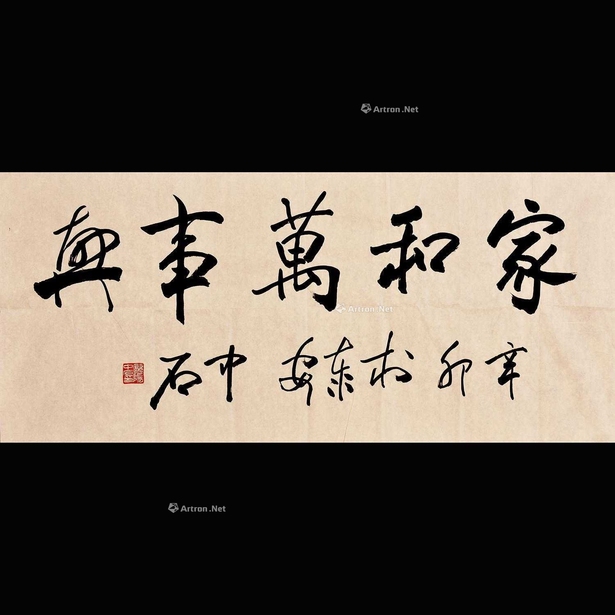 Artron.Net
家和萬事興
Artron.Net
辛卯於東安中石
Artron.Net